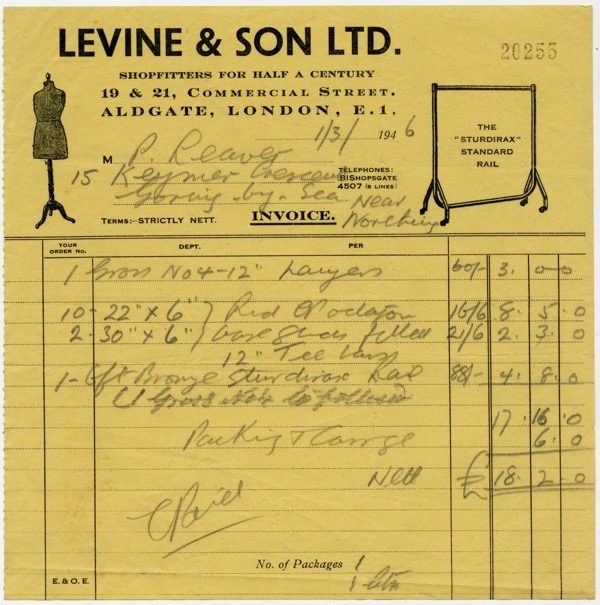 LEVINE & SON LTD.
20255
SHOPFITTERS FOR HALF A CENTURY
19 & 21, COMMERCIAL STREET.
ALDGATE, LONDON, E.1.
1/3/ 1946
THE
"STURDIRAX"
STANDARD
RAIL
M P. Reaver
15 Keymer Crescent
Goring-by-Sea
Near
Worthing
TELEPHONES:
BISHOPSGATE
4507 (5 LINES)
TERMS:—STRICTLY NETT.
INVOICE.
YOUR ORDER No.
DEPT.
PER
1 Gross No 4 - 12" Layers 60/- 3. 0 0
10 - 22" x 6" } Red 16/6 8. 5. 0
2 - 30" x 6" } base filled 21/6 2. 3. 0
12" Tee
1 - 6ft Bronze Sturdirax Rail 88/- 4. 8. 0
Gross No 4 to follow
17. 16. 0
Packing & Carriage 6. 0
Nett £ 18. 2. 0
Paid
No. of Packages 1
1
E. & O. E.